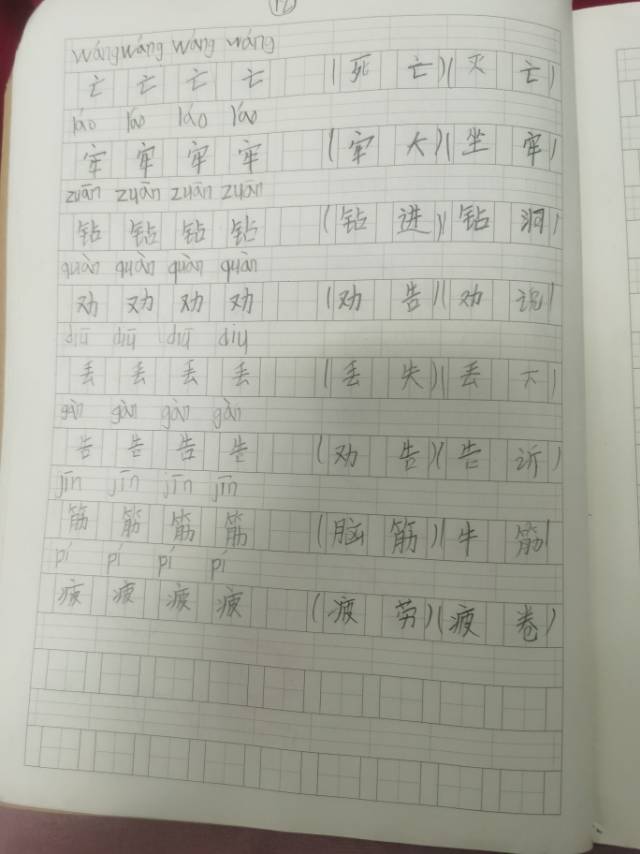 17
wáng wáng wáng wáng
亡 亡 亡 亡 (死 亡)(灭 亡)
láo láo láo láo
牢 牢 牢 牢 (牢 大)(坐 牢)
zuān zuān zuān zuān
钻 钻 钻 钻 (钻 进)(钻 洞)
quàn quàn quàn quàn
劝 劝 劝 劝 (劝 告)(劝 说)
diū diū diū diu
丢 丢 丢 丢 (丢 失)(丢 下)
gàn gàn gàn gàn
告 告 告 告 (劝 告)(告 诉)
jīn jīn jīn jīn
筋 筋 筋 筋 (脑 筋)(牛 筋)
pí pí pí pí
疲 疲 疲 疲 (疲 劳)(疲 卷)